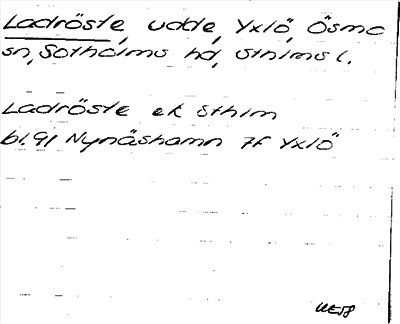 Ladröste, udde, Yxlö, Ösmo
sn, Sotholms hd, Sthlms l.
Ladröste ek Sthlm
bl. 91 Nynäshamn 7f Yxlö